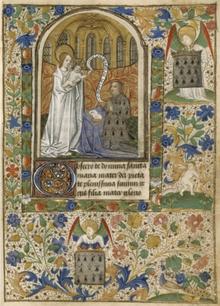 Obsecro te domina sancta
maria mater dei pieta
te plenissima summi re
gis filia mater glorio